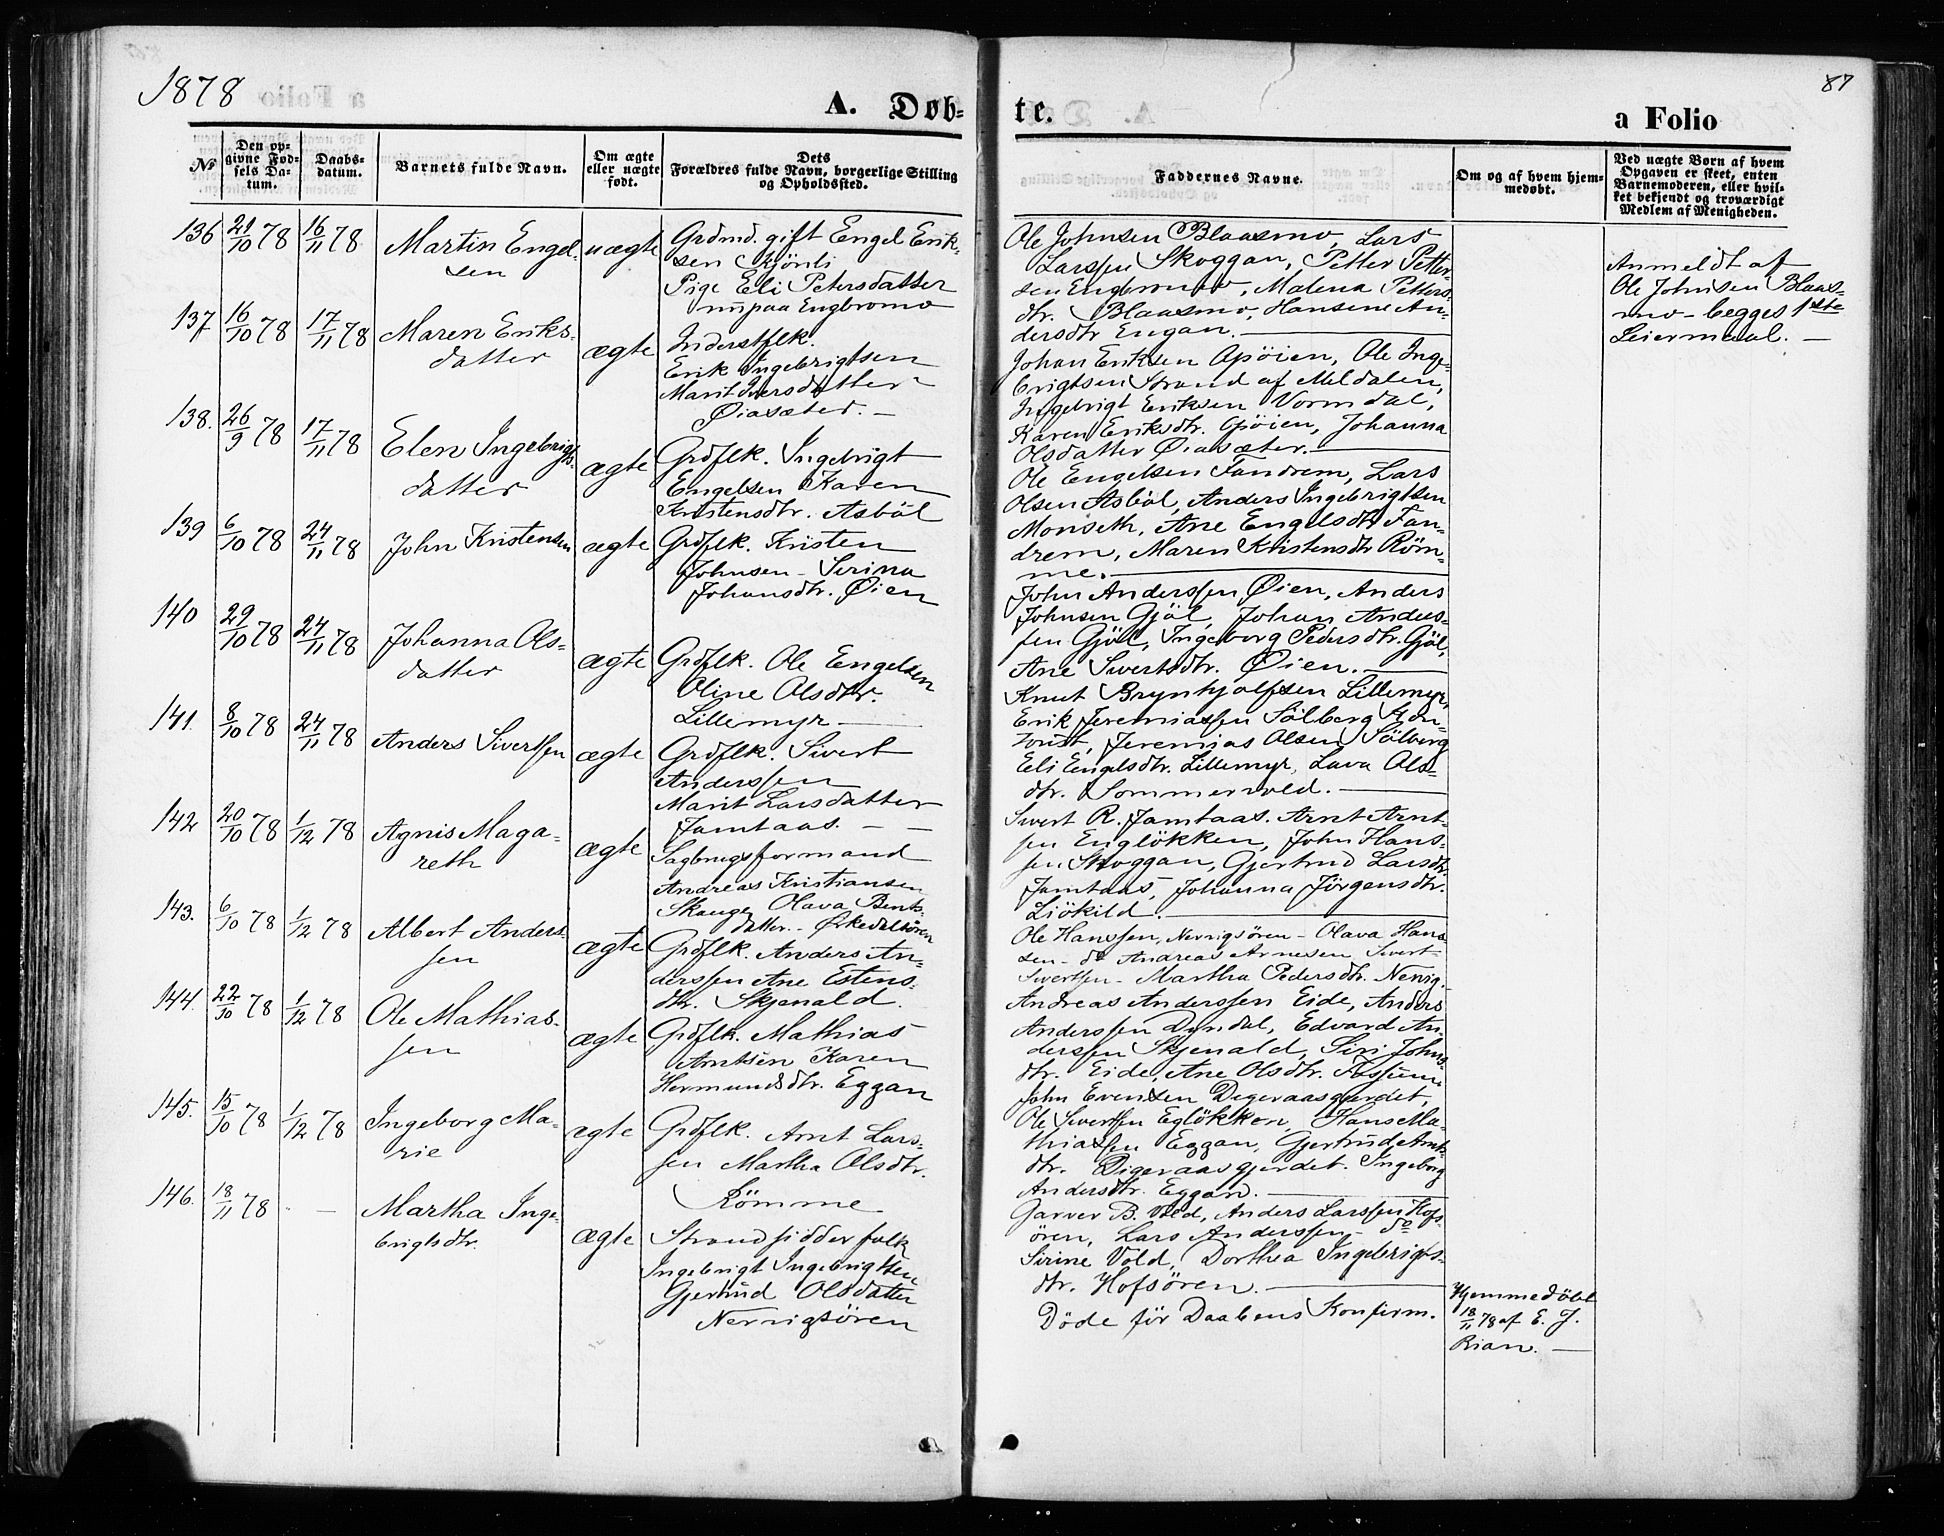 1878
A. Døb-
te.
a Folio
87
No
Den op-
givne Fød-
sels Da-
tum.
Daabs-
datum.
Barnets fulde Navn.
Om ægte
eller uægte
født.
Dets
Forældres fulde Navn, borgerlige Stilling
og Opholdssted.
Faddernes Navne.
Om og af hvem hjem-
medøbt.
Ved uægte Børn af hvem
Opgaven er skeet, enten
Barnemoderen, eller hvil-
ket bekjendt og troværdigt
Medlem af Menigheden.
136 21/10 78 16/11 78 Martin Engel-
sen
uægte
Grdmd. gift Engel Erik-
sen
Pige Eli Petersdatter
paa Engbromo
Ole Johnsen Blaasmo, Lars
Larssen Skoggan, Petter Petter-
sen Engbromo, Malena Petters-
dtr. Blaasmo, Hansine An-
dersdtr Engan.
Anmeldt af
Ole Johnsen Blaas-
mo - begges 1ste
Leiermaal. —
137 16/10 78 17/11 78 Maren Eriks-
datter
ægte
Inderstflk.
Erik Ingebrigtsen
Marit Iversdatter
Øiasæter. —
Johan Eriksen Opöien, Ole Inge-
brigtsen Strand af Meldalen,
Ingebrigt Eriksen Vormdal,
Karen Eriksdtr. Opöien, Johanna
Olsdatter Øiasæter.
138. 26/9 78 17/11 78 Elen Ingebrigts-
datter
ægte
Grdflk. Ingebrigt
Engelsen Karen
Kristensdtr. Asböl
Ole Engelsen Fandrem, Lars
Olsen Asböl, Anders Ingebrigtsen
Monseth, Ane Engelsdtr Fan-
drem, Maren Kristensdtr Röm-
me.
139 6/10 78 24/11 78 John Kristensen
ægte
Grdflk. Kristen
Johnsen - Sirina
Johansdtr. Øien
John Anderssen Øien, Anders
Johnsen Gjöl, Johan Anders-
sen Gjöl, Ingeborg Pedersdtr. Gjöl,
Ane Sivertsdtr. Øien.
140 29/10 78 24/11 78 Johanna Ols-
datter
ægte
Grdflk. Ole Engelsen
Oline Olsdtr.
Lillemyr
Knut Brynhjolfsen Lillemyr,
Erik Jeremiassen Sölberg
Jeremias Olsen Sölberg
Eli Engelsdtr. Lillemyr, Lava Ols-
dtr. Sommervold.
141. 8/10 78 24/11 78 Anders Sivertsen
ægte
Grdflk. Sivert
Anderssen
Marit Larsdatter
Jamtaas. — —
Sivert R. Jamtaas. Arnt Arnt-
sen Englökken, John Hans-
sen Skoggan, Gjertrud Larsdtr.
Jamtaas, Johanna Jörgensdtr.
Liökild.
142 20/10 78 1/12 78 Agnis Maga-
reth
ægte
Sagbrugsformand
Andreas Kristiansen
Skauge, Olava Bents-
datter - Ørkedalsören
Ole Hanssen, Nervigsören - Olava Hans
sen - do Andreas Arnesen, Sivert
Sivertsen - Martha Pedersdtr. Nervig.
143. 6/10 78 1/12 78 Albert Anders-
sen
ægte
Grdflk. Anders An-
derssen Ane Estens-
dtr. Skjenald.
Andreas Anderssen Eide, Anders
Anderssen Dyndal, Edvard An-
derssen Skjenald, Siri Johns-
dtr. Eide, Ane Olsdtr. Fossum.
144. 22/10 78 1/12 78 Ole Mathias-
sen
ægte
Grdflk. Mathias
Arntsen Karen
Hermundsdtr. Eggan
John Evensen Digeraasgjerdet,
Ole Sivertsen Eglökken, Hans Ma-
thiassen Eggan, Gjertrud Arnts-
dtr. Digeraasgjerdet. Ingeborg
Andersdtr. Eggan.
145. 15/10 78 1/12 78 Ingeborg Ma-
rie
ægte
Grdflk. Arnt Lars-
sen Martha Olsdtr.
Römme
Garver B. Vold, Anders Larssen Hofs-
ören, Lars Anderssen - do
Sirine Vold, Dorthea Ingebrigts-
dtr. Hofsören.
146. 18/11 78 — Martha Inge-
brigtsdtr.
ægte
Strandsidderfolk
Ingebrigt Ingebrigtsen
Gjertrud Olsdatter
Nervigsören
Döde för Daabens Konfirm.
Hjemmedöbt
18/11 78 af E. J.
Rian. —